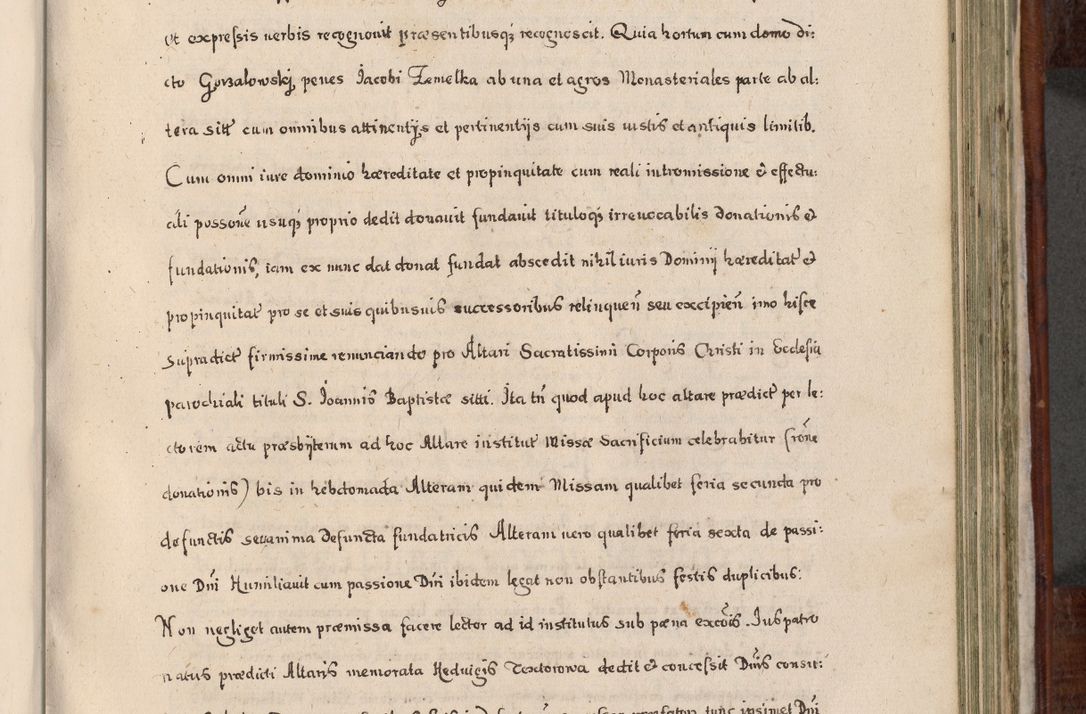 et expressis verbis recognovit præsentibusq; recognoscit. Quia hortum cum domo di:
cto Gorzalowskj penes Jacobi Zemelka ab una et agros Monasteriales parte ab al:
tera sitt cum omnibus attinentijs et pertinentijs cum suis iustis et antiquis limitib.
Cum omni iure dominio hæreditate et propinquitate cum reali intromissione & effectu:
ali possone usuq; proprio dedit donavit fundavit tituloq; irrevocabilis donationis &
fundationis, iam ex nunc dat donat fundat abscedit nihil iuris Dominij hæreditat &
propinquitat pro se et suis quibusuis successoribus relinquen seu excipien imo hisce
supradict firmissime renunciando pro Altari Sacratissimi Corporis Christi in Ecclesia
parochiali tituli S. Joannis Baptistæ sitti. Ita tn quod apud hoc altare prædict per le:
ctorem actu præsbyterum ad hoc Altare institut Missæ Sacrificium celebrabitur (rone
donationis) bis in hebdomada Alteram quidem Missam qualibet feria secunda pro
defunctis seu anima defuncta fundatricis Alteram vero qualibet feria sexta de passi:
one Dni Humiliavit cum passione Dni ibidem legat non obstantibus festis duplicibus:
Non negliget autem præmissa facere lector ad id institutus sub pæna excois. Jus patro
natus prædicti Altaris memorata Hedvigis Textorowa dedit & concessit Dnis consu:
tunc ipsimet Dni